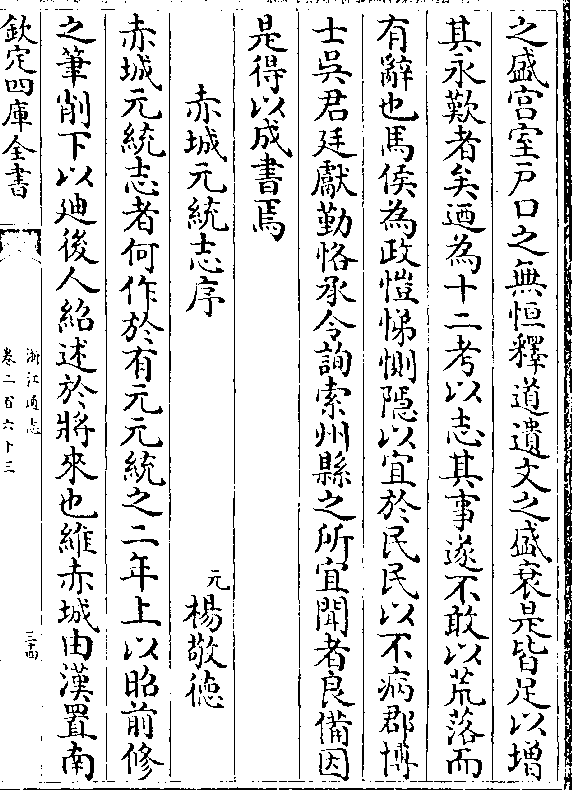 之盛宫室戸口之無恒釋道遺文之盛衰是皆足以增
其永歎者矣迺為十二考以志其事遂不敢以荒落而
有辭也馬侯為政愷悌惻隱以宜於民民以不病郡博
士吳君廷獻勤恪承令詢索州縣之所宜聞者良備因
是得以成書焉
赤城元統志序
元
楊敬徳
赤城元統志者何作於有元元統之二年上以昭前修
之筆削下以廸後人紹述於將來也維赤城由漢置南
欽定四庫全書
浙江通志
卷二百六十三
三十四